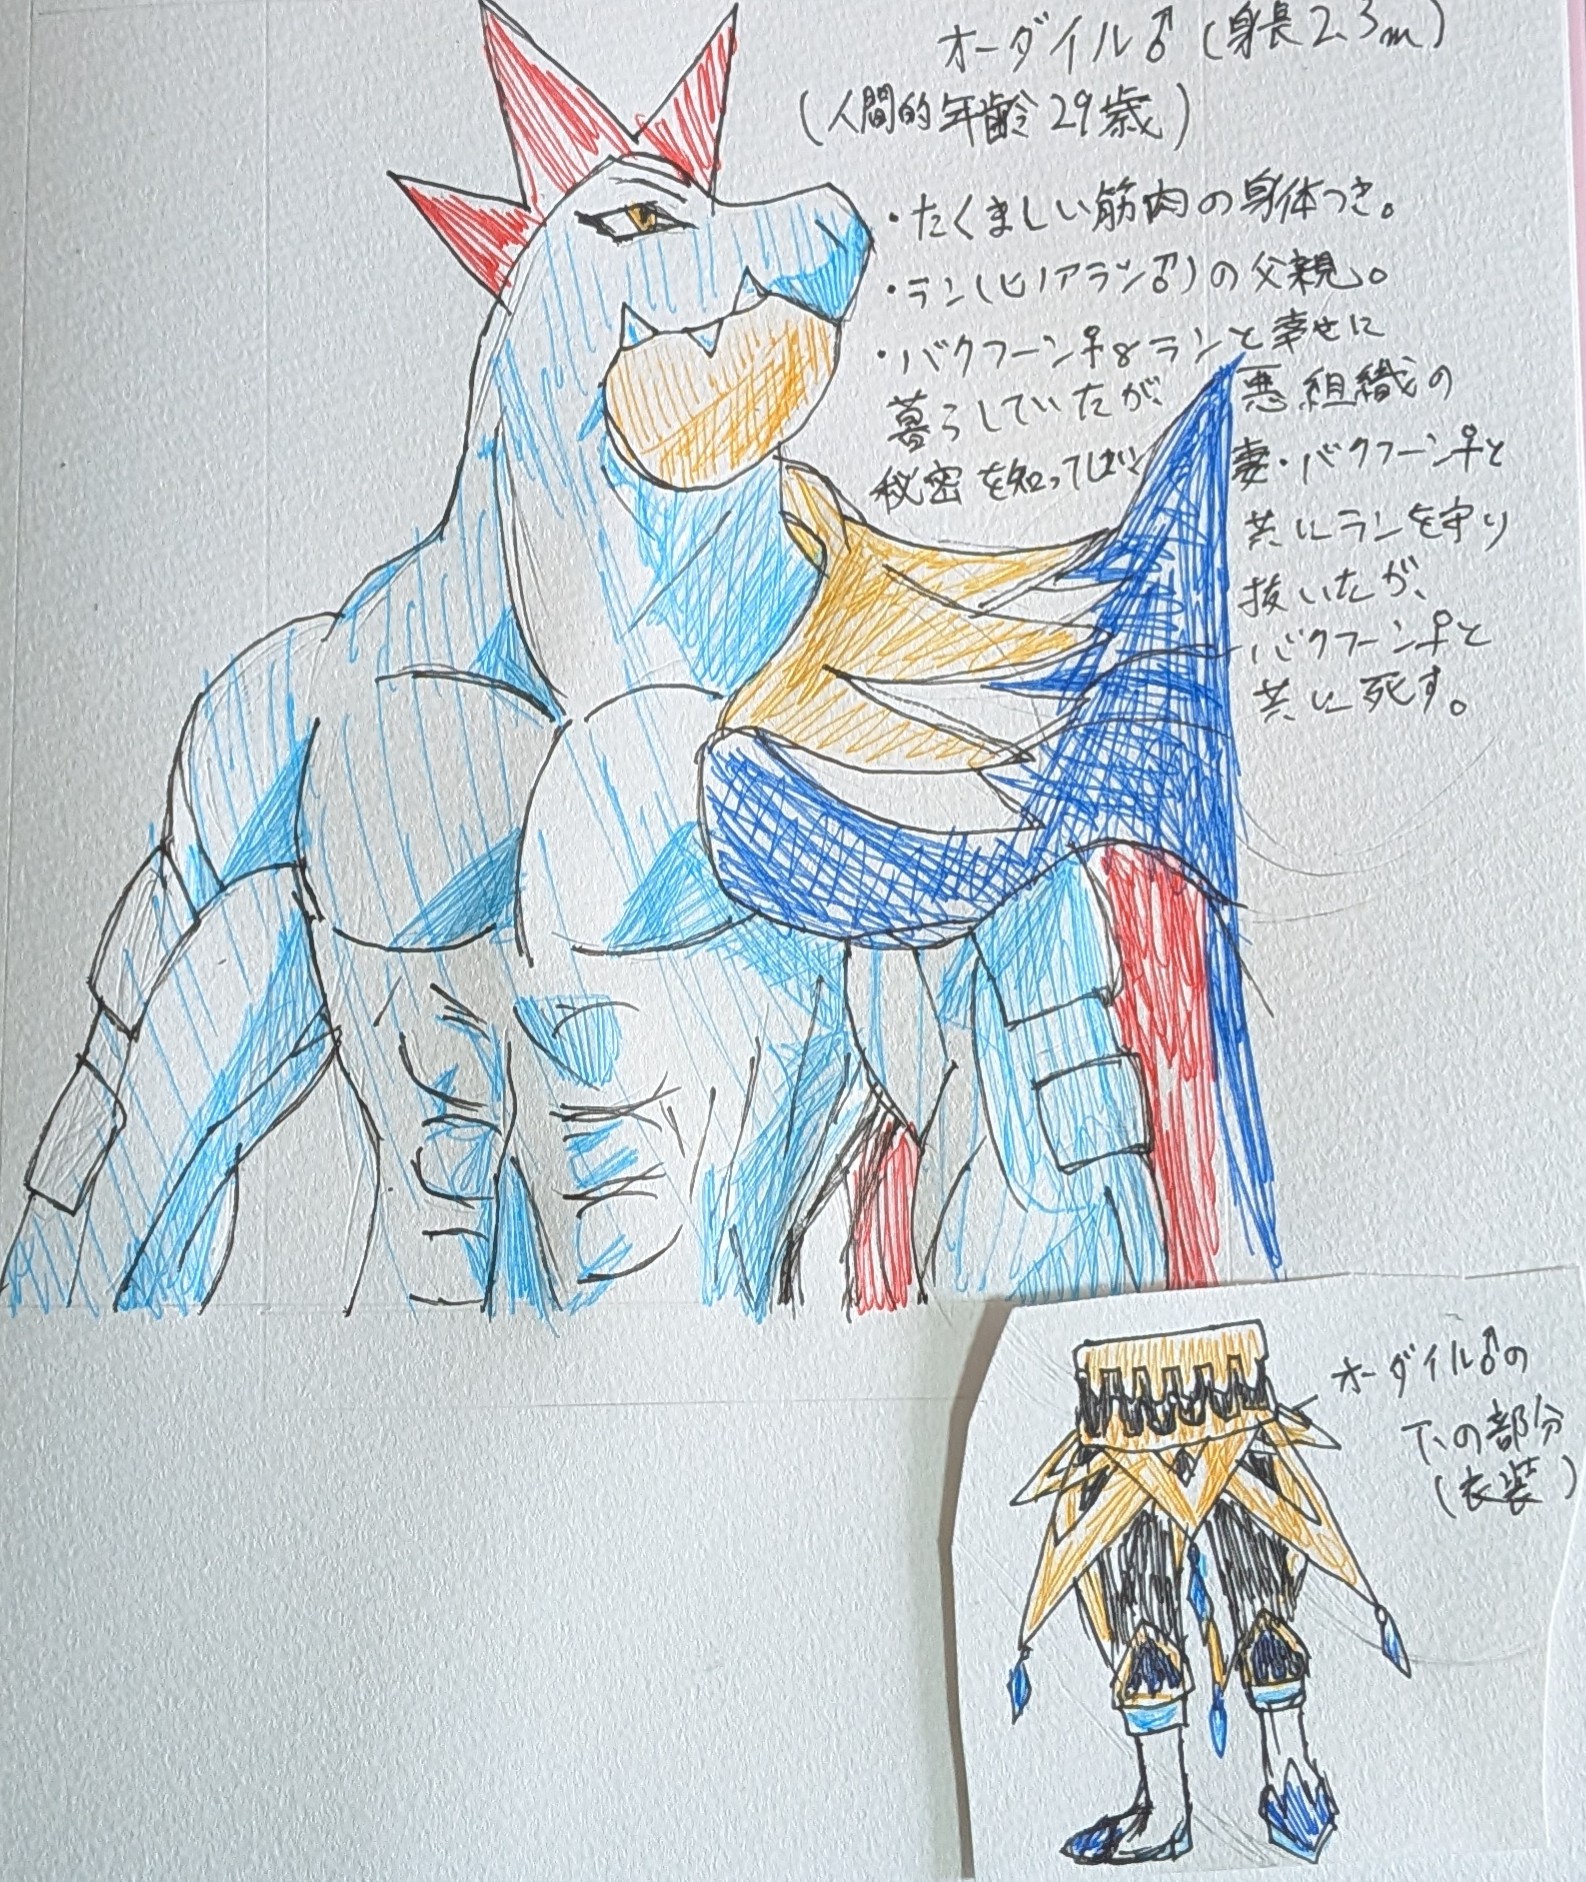 オーダイル♂(身長2.3m)
(人間的年齢29歳)
・たくましい筋肉の身体つき。
・ラン(ヒノアラシ♂)の父親。
・バクフーン♀&ランと幸せに
暮らしていたが、悪組織の
秘密を知ってしまい
妻・バクフーン♀と
共にランを守り
抜いたが、
バクフーン♀と
共に死す。
オーダイル♂の
下の部分
(衣装)